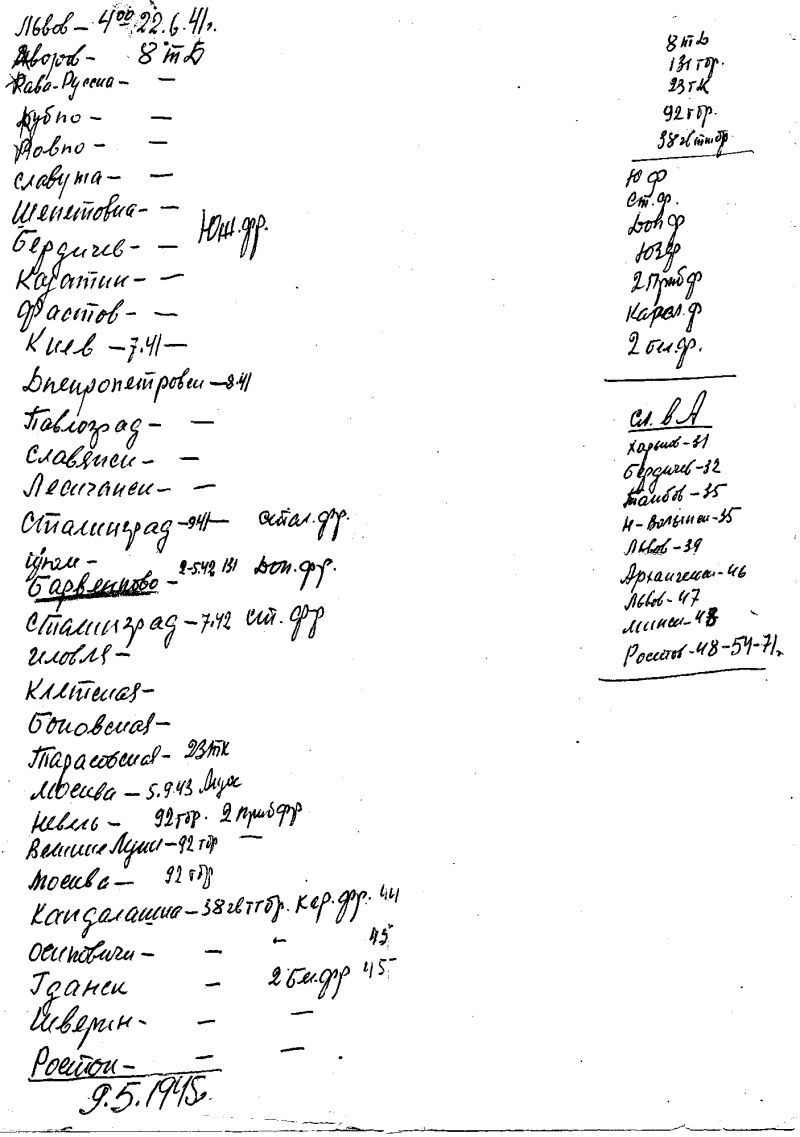 Львов – 4⁰⁰ 22.6.41г.
Яворов – 8 тд
Рава-Русска – —
Дубно – —
Ровно – —
славута – —
Шепетовка – —
Бердичев – — Юж.фр.
Казатин – —
Фастов – —
Киев – 7.41 —
Днепропетровск – 8.41
Павлоград – —
Славянск – —
Лисичанск – —
Сталинград – 941 — стал.фр.
Изюм –
Барвенково – 2-5.42 131 Дон.фр.
Сталинград – 7.42 ст. фр
иловля –
Клетская –
Боковская –
Тарасовская – 23тк
Москва – 5.9.43
Невель – 92тбр. 2 приб фр
Великие Луки – 92 тбр —
Москва – 92 тбр
Кандалакша – 38 гв ттбр. Кар.фр. 44
Осиповичи – — – 45
Гданск — 2 Бел.фр 45
Шверин – — —
Росток – — —
9.5.1945г.
8 тд
131 тбр.
23 тк
92 тбр.
38 гв ттбр
Ю ф
Ст.ф.
Дон ф
ЮЗф
2 Приб ф
Карел.ф
2 бел.ф.
Сл. в А
Харьков – 31
Бердичев – 32
Тамбов – 35
Н-Волынск – 35
Львов – 39
Архангельск – 46
Львов – 47
Минск – 48
Ростов – 48 – 54 – 71г.